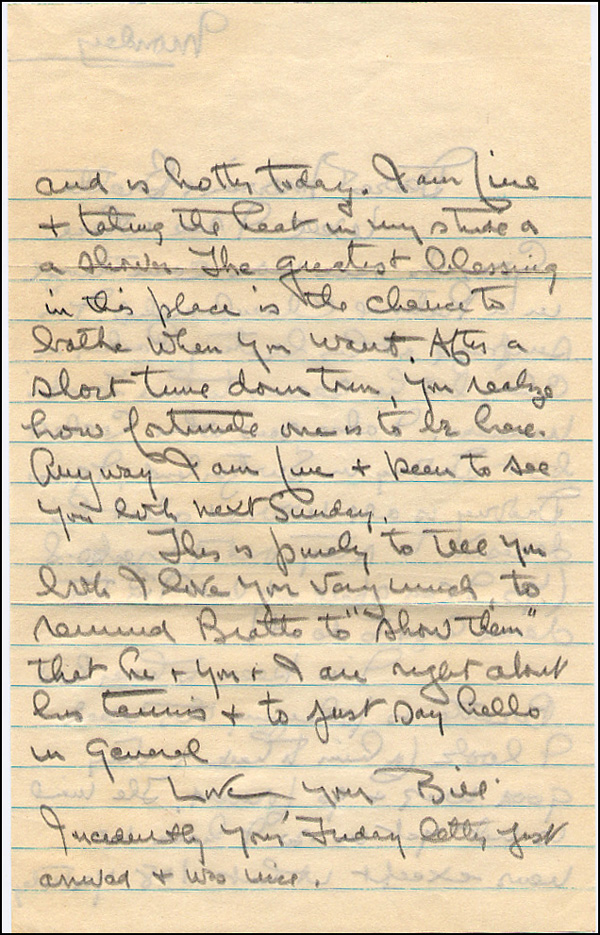 and is hotter today. I am fine
+ taking the heat in my stride or
a shower The greatest blessing
in this place is the chance to
bathe when you want. After a
short time down town, you realize
how fortunate one is to be here.
Anyway I am fine + keen to see
you both next Sunday.
This is purely to tell you
both I love you very much, to
remind to "show them"
that he + you + I are right about
his tennis + to just say hello
in General
Love your Bill
Incidently your Friday letter just
arrived + was nice.
Monday